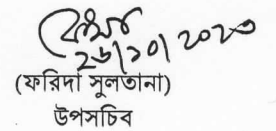 ২৬/১০/২০২৩
(ফরিদা সুলতানা)
উপসচিব